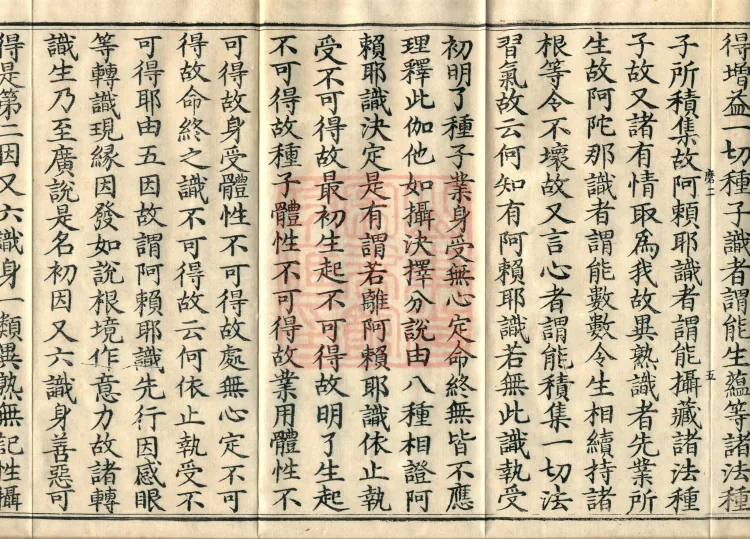 得增益一切種子識者謂能生蘊等諸法種
五
子所積集故阿賴耶識者謂能攝藏諸法種
子故又諸有情取爲我故異熟識者先業所
生故阿陀那識者謂能數數令生相續持諸
根等令不壞故又言心者謂能積集一切法
習氣故云何知有阿賴耶識若無此識執受
初明了種子業身受無心定命終無皆不應
理釋此伽他如攝決擇分說由八種相證阿
賴耶識決定是有謂若離阿賴耶識依止執
受不可得故最初生起不可得故明了生起
不可得故種子體性不可得故業用體性不
可得故身受體性不可得故處無心定不可
得故命終之識不可得故云何依止執受不
可得耶由五因故謂阿賴耶識先行因感眼
等轉識現緣因發如說根境作意力故諸轉
識生乃至廣說是名初因又六識身善惡可
得是第二因又六識身一類異熟無記性攝